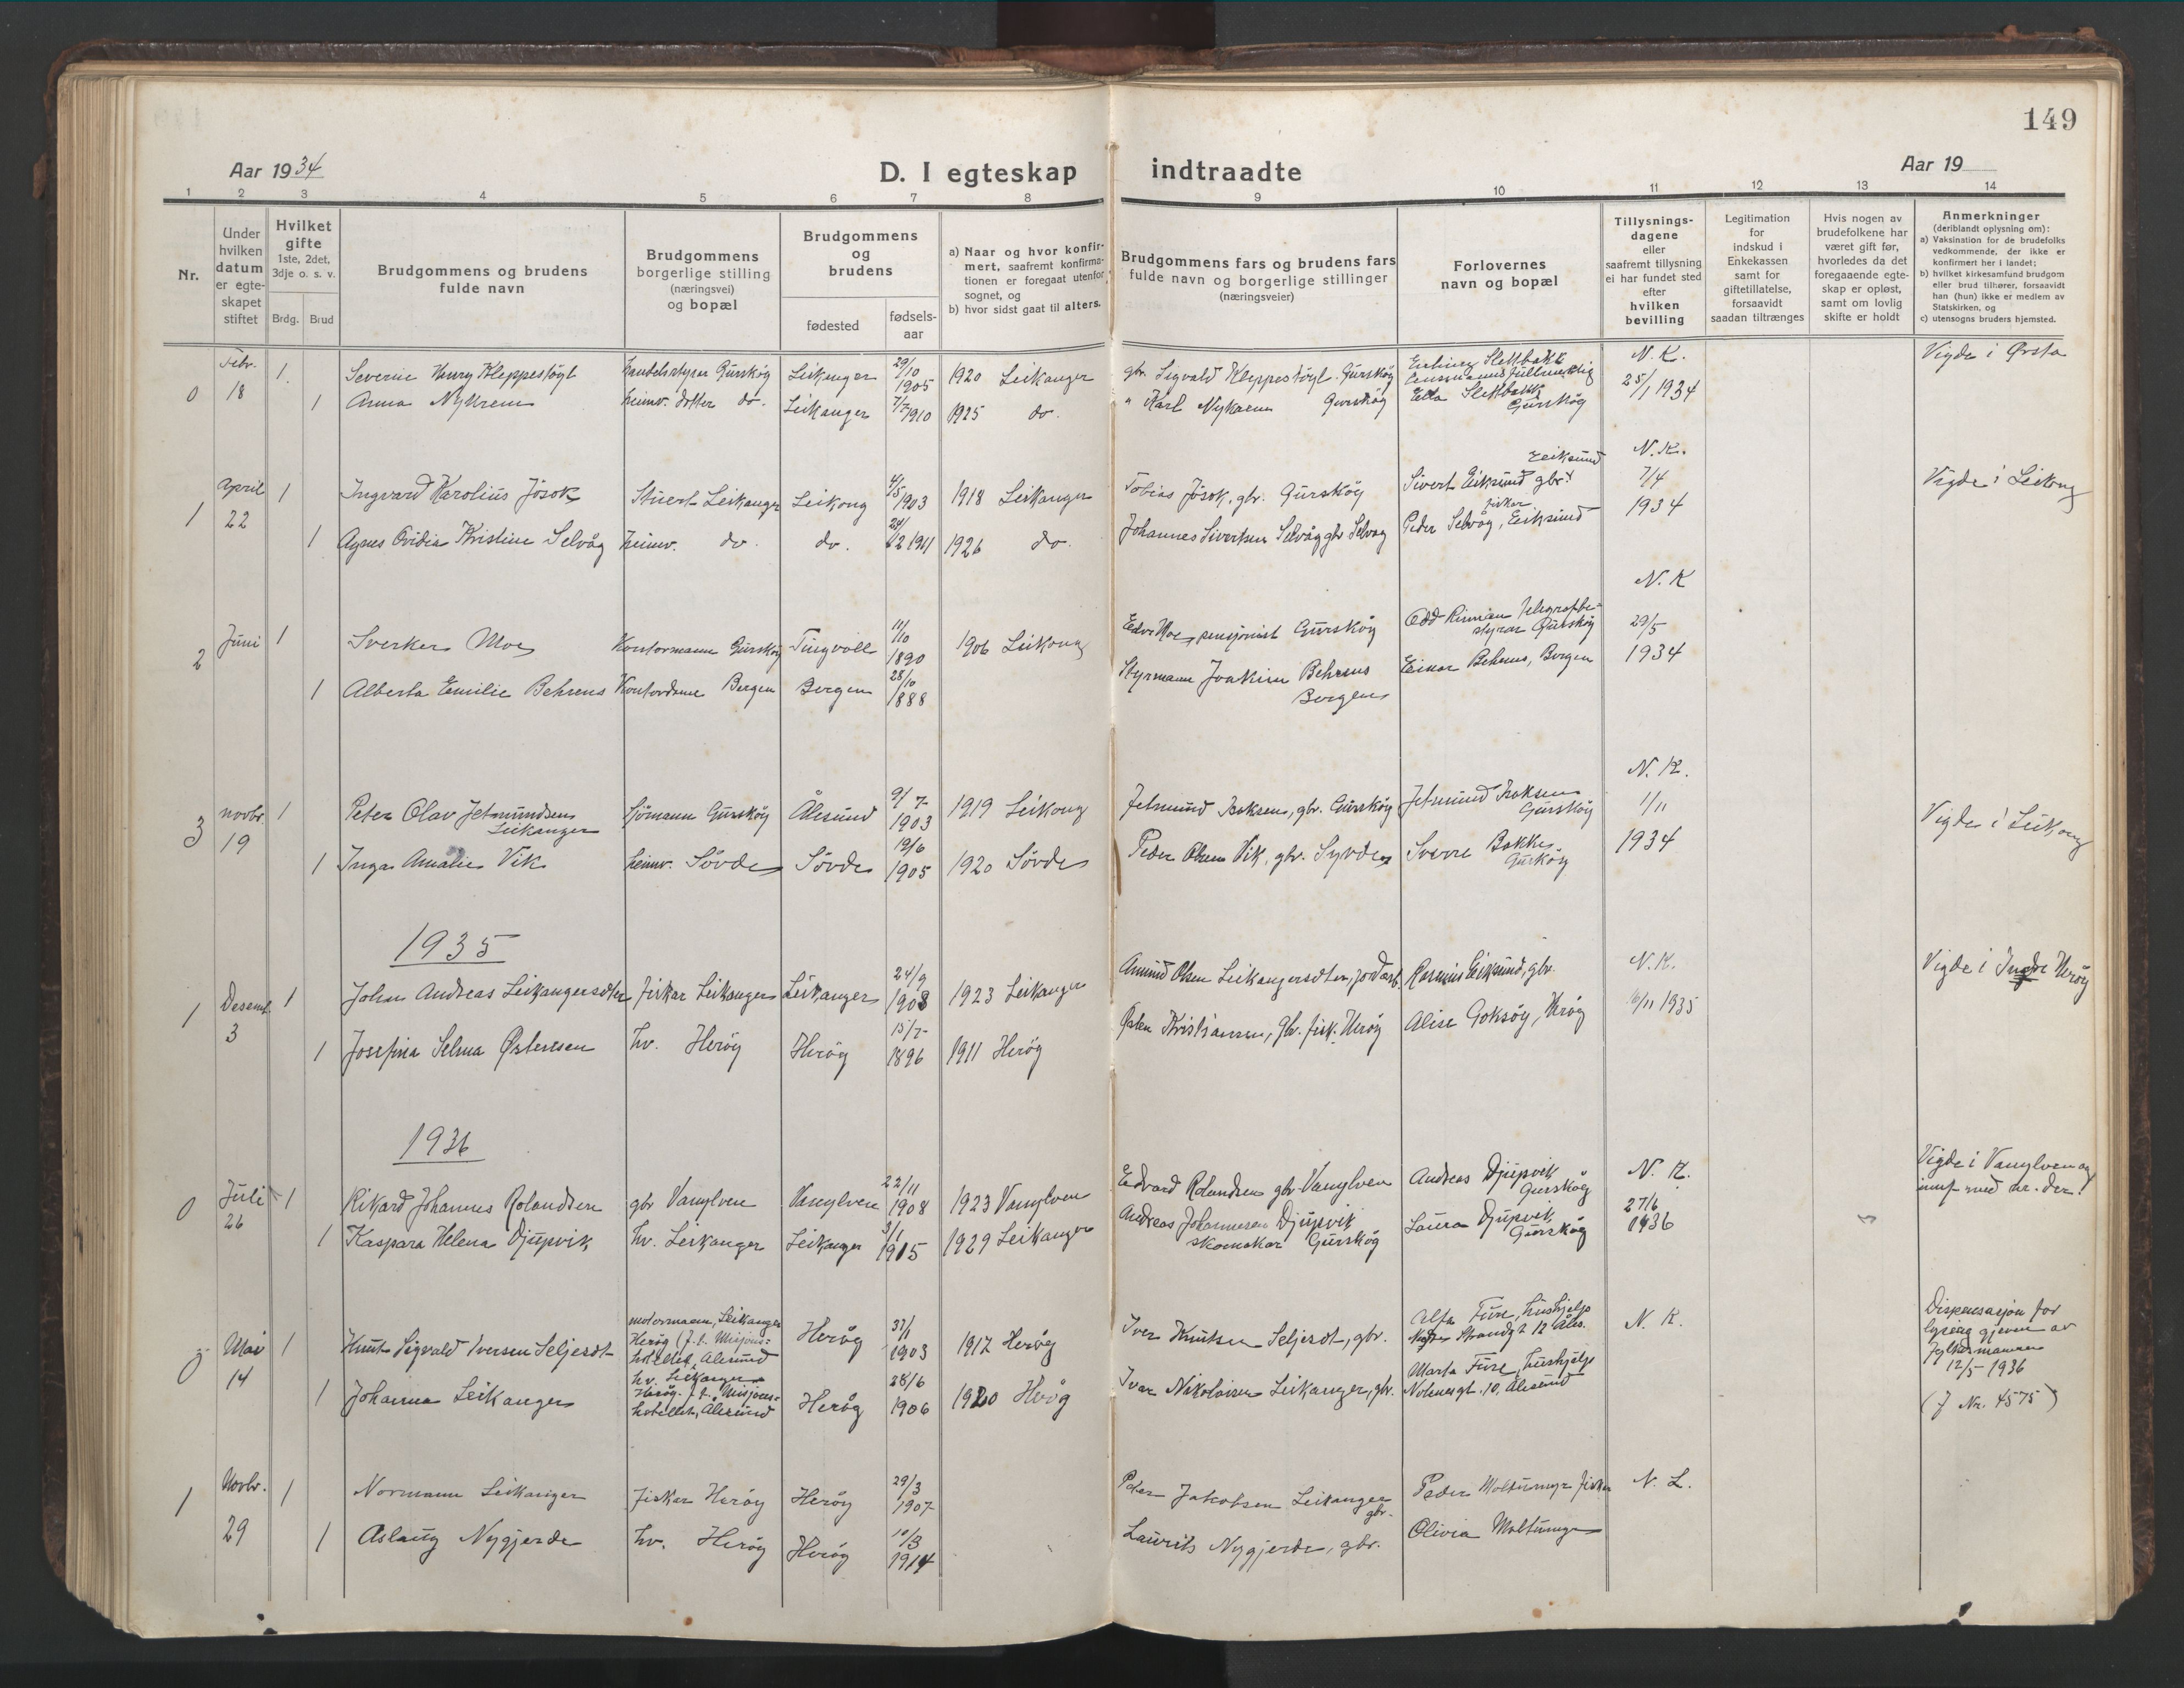 149
Aar 1934
D. I egteskap indtraadte
Aar 19
1 2 3 4 5 6 7 8 9 10 11 12 13 14
Nr.
Under hvilken datum er egte- skapet stiftet
Hvilket gifte 1ste, 2det, 3dje o. s. v.
Brdg. Brud
Brudgommens og brudens fulde navn
Brudgommens borgerlige stilling (næringsvei) og bopæl
Brudgommens og brudens
fødested
fødsels- aar
a) Naar og hvor konfir- mert, saafremt konfirma- tionen er foregaat utenfor sognet, og
b) hvor sidst gaat til alters.
Brudgommens fars og brudens fars fulde navn og borgerlige stillinger (næringsveier)
Forlovernes navn og bopæl
Tillysnings- dagene eller saafremt tillysning ei har fundet sted efter hvilken bevilling
Legitimation for indskud i Enkekassen samt for giftetillatelse, forsaavidt saadan tiltrænges
Hvis nogen av brudefolkene har været gift før, hvorledes da det foregaaende egte- skap er opløst, samt om lovlig skifte er holdt
Anmerkninger (deriblandt oplysning om):
a) Vaksination for de brudefolks vedkommende, der ikke er konfirmert her i landet;
b) hvilket kirkesamfund brudgom eller brud tilhører, forsaavidt han (hun) ikke er medlem av Statskirken, og
c) utensogns bruders hjemsted.
0 Febr. 18 1 Severin Henry Kleppestøyl handelsstyrar Gurskøy Leikanger 29/10 1905 1920 Leikanger gbr. Sigvald Kleppestøyl Gurskøy Slettbakk N. K. Vigde i Ørsta
1 Anna Nykrem heimv. dotter do. Leikanger 7/7 1910 1925 do. " Karl Nykrem Gurskøy Slettbakk Gurskøy 25/1 1934
1 April 22 1 Ingvard Karolius Jøsok Stuert Leikanger Leikong 4/5 1903 1918 Leikanger Tobias Jøsok, gbr. Gurskøy Sivert Eiksund gbr. Eeiksund N. K. 7/4 Vigde i Leikong
1 Agnes Ovidia Kristine Selvåg heimv. do. do. 24/12 1911 1926 do. Johannes Sivertsen Selvåg gbr Selvåg Peder Selvåg, fiskar Eiksund 1934
2 Juni 1 Sverker Moe Kontormann Gurskøy Tingvoll 11/10 1890 1906 Leikong Moe, pensjonist Gurskøy Odd Rinnan telegrafbe- styrar Gurskøy N. K 29/5
1 Alberta Emilie Behrens Kontordame Bergen Bergen 28/10 1888 Styrmann Joakim Behrens Bergen Einar Behrens, Bergen 1934
3 novbr. 19 1 Peter Olav Jetmundsen Leikanger Sjømann Gurskøy Ålesund 9/7 1903 1919 Leikong Jetmund Isaksen, gbr. Gurskøy Jetmund Isaksen Gurskøy N. K. 1/11 Vigde i Leikong
1 Inga Amalie Vik heimv. Søvde Søvde 19/6 1905 1920 Søvde Peder Olsen Vik, gbr. Syvde Sverre Bakke Gurskøy 1934
1935
1 Desemb. 3 1 Johan Andreas Leikangersæter fiskar Leikanger Leikanger 24/9 1908 1923 Leikanger Amund Olsen Leikangersæter, jordarb. Rasmus Eiksund, gbr. N. K. Vigde i Indre Herøy
1 Josefina Selma Østensen hv. Herøy Herøy 15/7 1896 1911 Herøy Østen Kristiansen, gbr. fisk. Herøy Alise Goksøy, Herøy 16/11 1935
1936
0 Juli 26 1 Rikard Johannes Rolandsen gbr Vanylven Vanylven 22/11 1908 1923 Vanylven Edvard Rolandsen gbr Vanylven Andreas Djupvik Gurskøy N. K. Vigde i Vanylven og innf. med nr. der.
1 Kaspara Helena Djupvik hv. Leikanger Leikanger 3/1 1915 1929 Leikanger Andreas Johannesen Djupvik skomakar Gurskøy Laura Djupvik Gurskøy 27/6 1936
0 Mai 14 1 Knut Sigvald Iversen Seljeset motormann, Leikanger Herøy (f. t. Misjons- hotellet, Ålesund Herøy 31/1 1903 1917 Herøy Iver Knutsen Seljeset, gbr. Alfa Fure, hushjelp Strandgt 12 Åles. N. K. Dispensasjon for lysing gjeven av fylkesmannen 12/5 - 1936 (J Nr. 4575)
1 Johanna Leikanger hv. Leikanger Herøy f. t. Misjons- hotellet, Ålesund Herøy 28/6 1906 1920 Herøy Ivar Nikolaisen Leikanger, gbr. Marta Fure, hushjelp 10, Ålesund
1 Novbr. 29 1 Normann Leikanger fiskar Herøy Herøy 29/3 1907 Peder Jakobsen Leikanger gbr. Peder Moltumyr fiskar N. L.
1 Aslaug Nygjerde hv. Herøy Herøy 10/3 1914 Laurits Nygjerde, gbr. Olivia Moltumyr